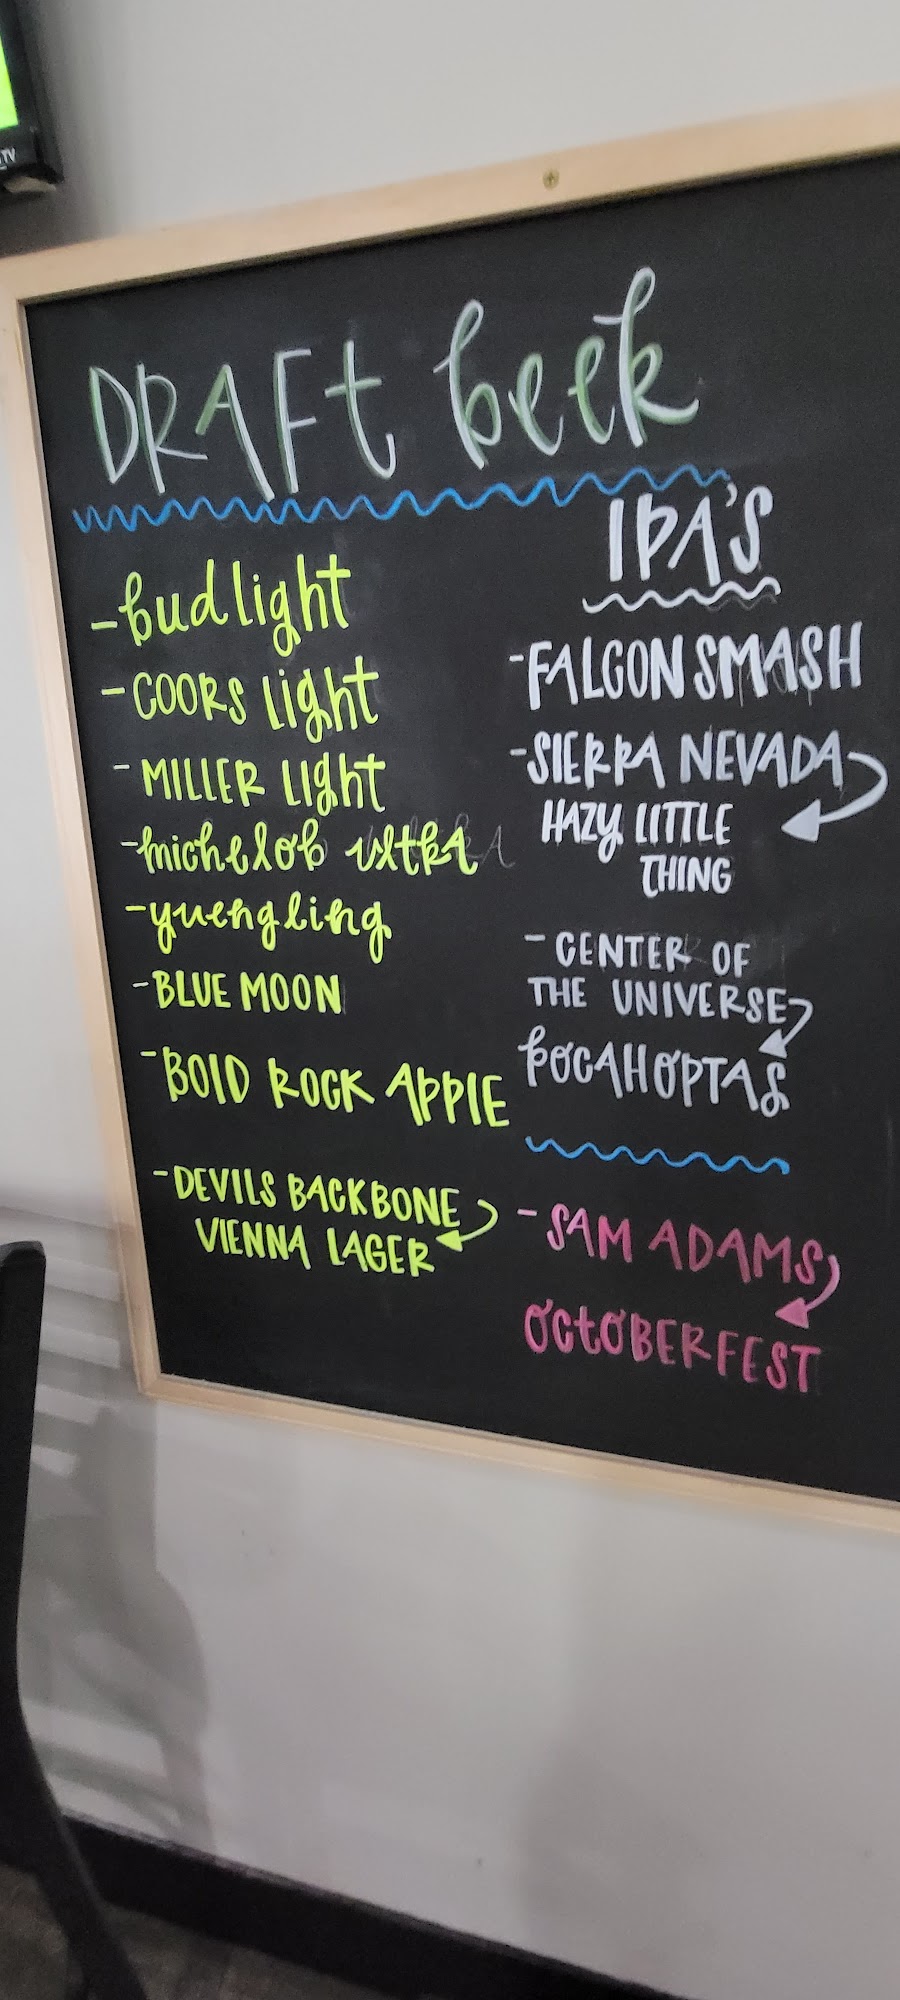 TV
DRAFt beer
- bud light
- COORS light
- MILLER light
- michelob ultra
- yuengling
- BLUE MOON
- BOLD ROCK APPLE
- DEVILS BACKBONE
VIENNA LAGER
IPA'S
- FALCON SMASH
- SIERRA NEVADA
HAZY LITTLE
THING
- CENTER OF
THE UNIVERSE
POCAHOPTAS
- SAM ADAMS
OCtOBERFEST